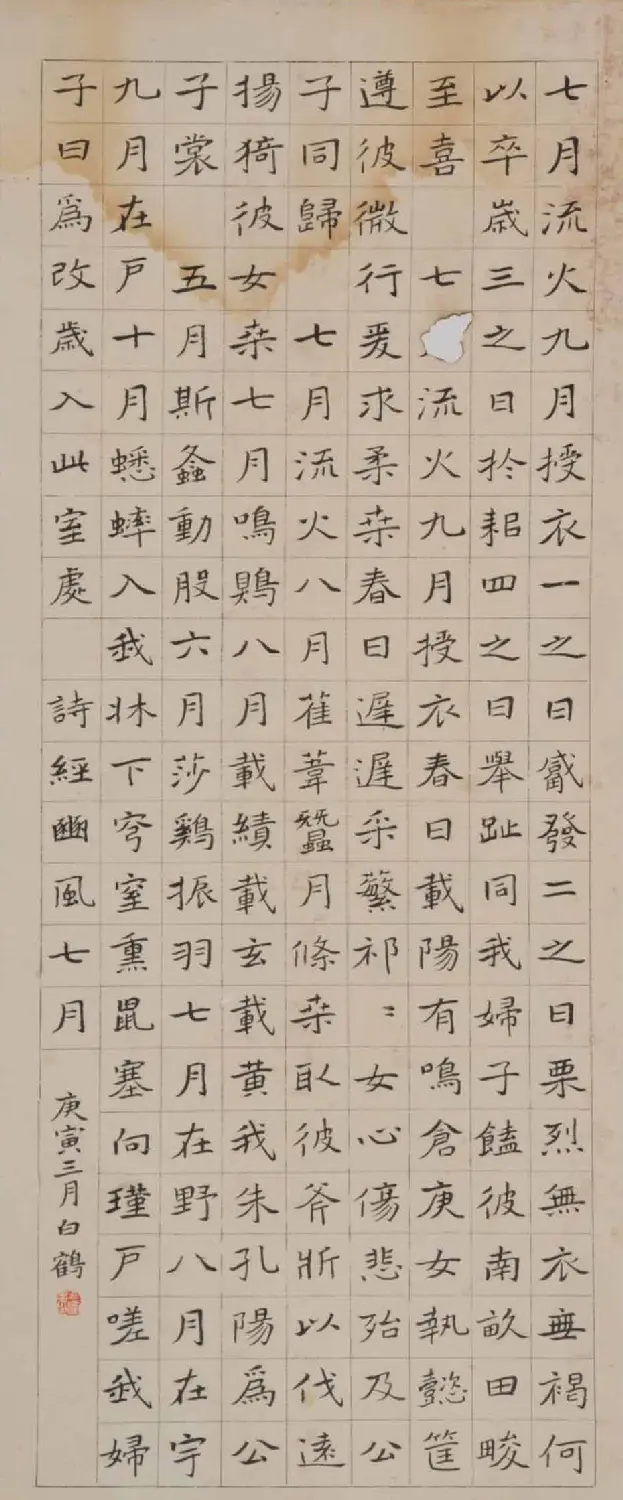 七月流火九月授衣一之日觱發二之日栗烈無衣無褐何
以卒歲三之日於耜四之日舉趾同我婦子饁彼南畝田畯
至喜 七流火九月授衣春日載陽有鳴倉庚女執懿筐
遵彼微行爰求柔桒春日遲遲采蘩祁〻女心傷悲殆及公
子同歸 七月流火八月萑葦蠶月條桒取彼斧斨以伐遠
揚猗彼女桒七月鳴鵙八月載績載玄載黃我朱孔陽爲公
子裳 五月斯螽動股六月莎鷄振羽七月在野八月在宇
九月在戶十月蟋蟀入我牀下穹窒熏鼠塞向墐戶嗟我婦
子曰爲改歲入此室處 詩經豳風七月
庚寅三月白鶴